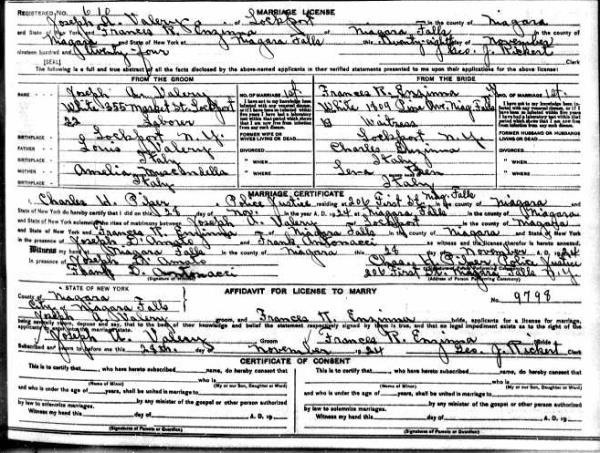 REGISTERED NO. MARRIAGE LICENSE
Joseph A. Valery of Lockport in the county of Niagara
and State of New York and Frances R. Enzinna of Niagara Falls in the county of
Niagara and State of New York at Niagara Falls this Twenty-eighth day of November
nineteen hundred and Twenty-Four Geo. J. Rickert Clerk
[SEAL]
The following is a full and true abstract of all the facts disclosed by the above-named applicants in their verified statements presented to me upon their applications for the above license:
FROM THE GROOM FROM THE BRIDE
NAME Joseph Valery NO. OF MARRIAGE 1st. Frances R. Enzinna NO. OF MARRIAGE 1st.
White 355 Market St. Lockport White 1409 Pine Ave. Niag. Falls
22 Laborer Waitress
BIRTHPLACE Lockport N.Y. FORMER WIFE OR WIVES LIVING OR DEAD. Lockport N.Y. FORMER HUSBAND OR HUSBANDS LIVING OR DEAD.
FATHER Louis Valery DIVORCED Charles Enzinna DIVORCED
BIRTHPLACE Italy " WHEN Italy " WHEN
MOTHER Amelia " WHERE Lena " WHERE
BIRTHPLACE Italy Italy
MARRIAGE CERTIFICATE
I, Charles W. Piper Police Justice residing at 206 First St. Niag. Falls in the county of Niagara and
State of New York do hereby certify that I did on this 28 day of Nov. in the year A. D. 1924 at Niagara Falls in the county of Niagara
and State of New York, solemnize the rites of matrimony between Joseph A. Valery of Lockport in the county of Niagara
and State of New York, and Frances R. Enzinna of Niagara Falls in the county of Niagara and State of New York
in the presence of Joseph D. Amato and Frank Antonacci as witness and the license therefor is hereto annexed.
Witness my hand at Niagara Falls in the county of Niagara this 28 day of November A. D. 1924
in the presence of Joseph Amato Chas. W. Piper Police Justice
Frank D. Antonacci 206 First St Niagara Falls N.Y.
STATE OF NEW YORK AFFIDAVIT FOR LICENSE TO MARRY
County of Niagara No. 9798
City Niagara Falls
Joseph A. Valery groom, and Frances R. Enzinna bride, applicants for a license for marriage,
being severally sworn, depose and say, that to the best of their knowledge and belief the statement respectively signed by them is true, and that no legal impediment exists as to the right of the
applicants to enter into the marriage state.
Joseph A. Valery Groom Frances R. Enzinna Bride
Subscribed and sworn to before me this 28th. day of November 1924 Geo. J. Rickert Clerk
CERTIFICATE OF CONSENT
This is to certify that who have hereto subscribed name, do hereby consent that This is to certify that who have hereto subscribed name, do hereby consent that
who is who is
(Name of Minor) (My or our Son, Daughter or Ward) (Name of Minor) (My or our Son, Daughter or Ward)
and who is under the age of years, shall be united in marriage to and who is under the age of years, shall be united in marriage to
by any minister of the gospel or other person authorized by any minister of the gospel or other person authorized
by law to solemnize marriages. by law to solemnize marriages.
Witness my hand this day of A. D. 19 Witness my hand this day of A. D. 19
(Signatures of Parents or Guardian) (Signatures of Parents or Guardian)